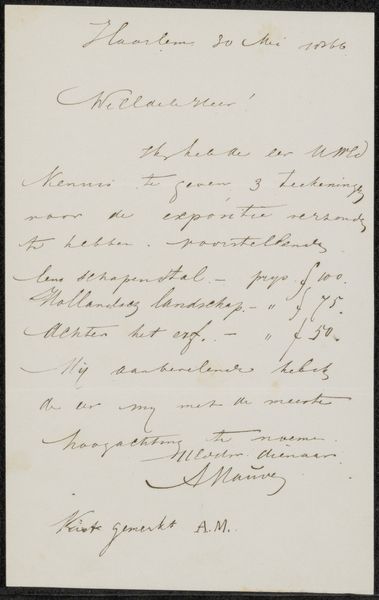 Haarlem 30 Mei 1866
WelEdele Heer!
Ik heb de eer UWEd
Kennis te geven 3 teekeningen
voor de expositie verzonden
te hebben. voorstellende
een schapenstal. - prys. f 100.
Hollandsch landschap. - " f 75.
Achter het erf. - " f 50.
My aanbevelende heb ik
de eer my met de meeste
hoogachting te noemen.
UEdr. dienaar.
A Mauve
Kist gemerkt A.M.